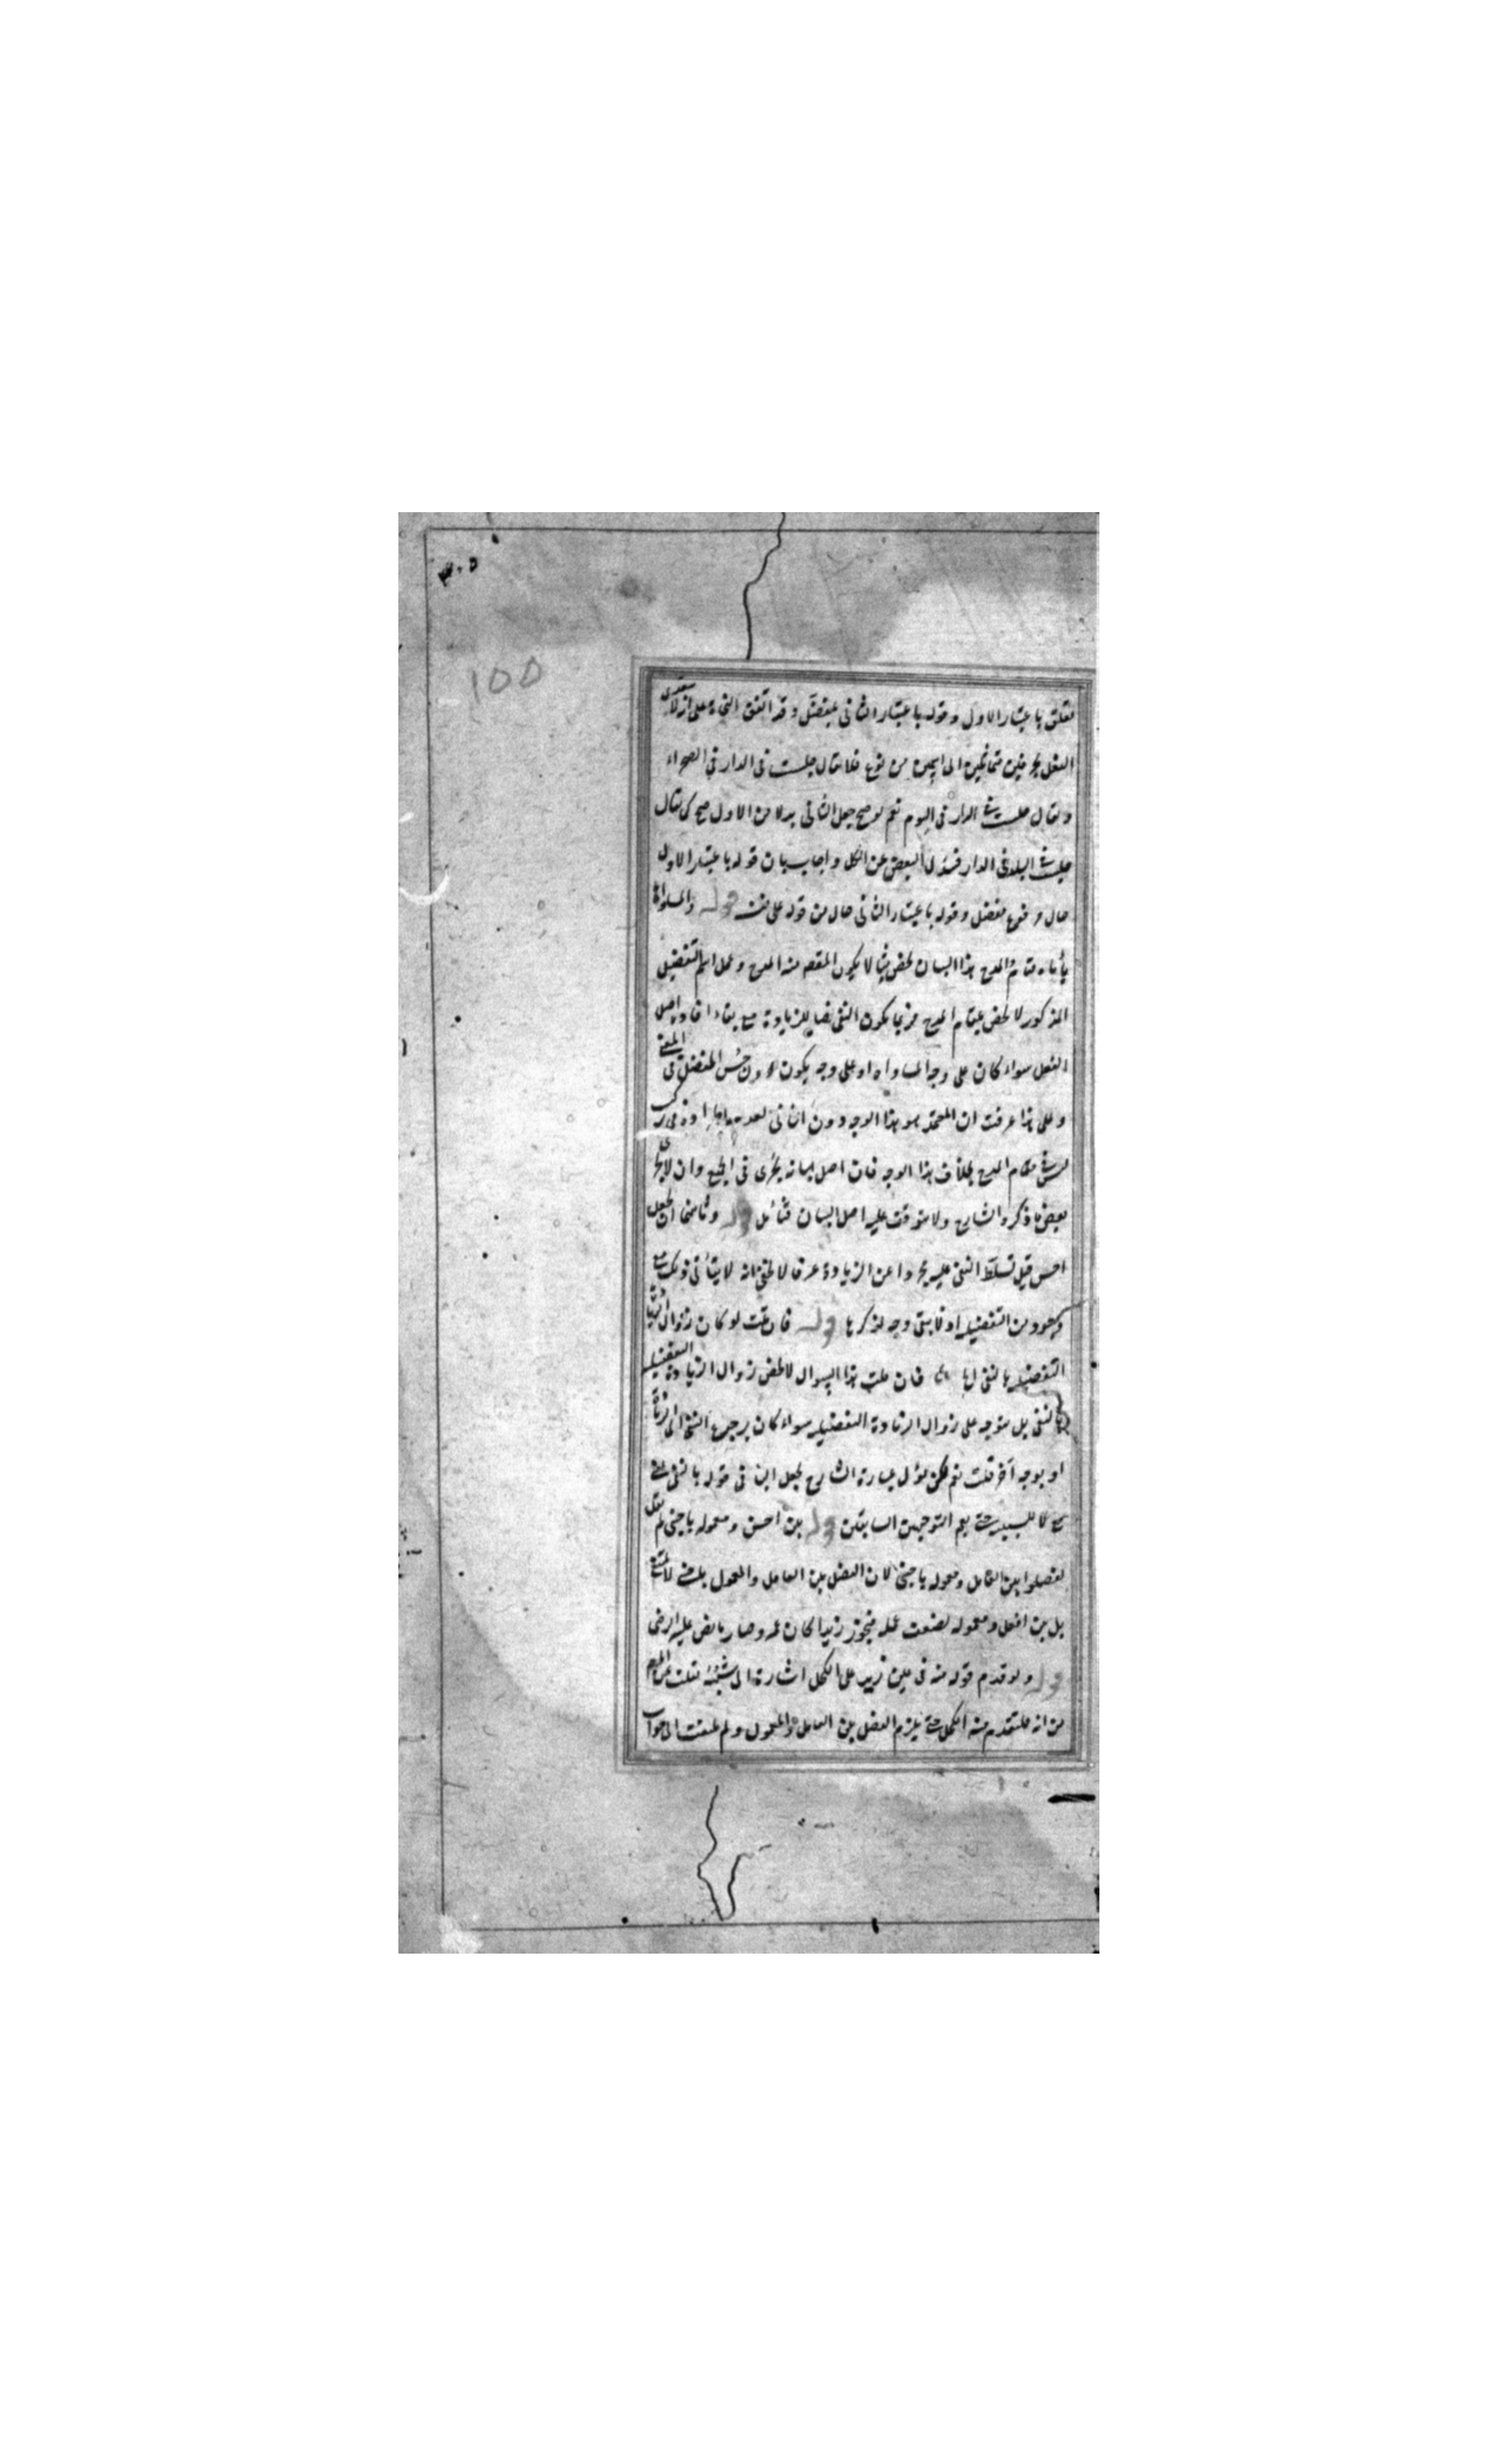 ٣٠٥
١٥٥
متعلق باعتبار الاول وقوله باعتبار الثانى بمفضل وقد اتفق النحاة على انه لا يتعدى
الفعل بحرفين متماثلين الى اسمين من نوع فلا يقال جلست فى الدار فى الصحراء
ويقال جلست فى الدار فى اليوم نعم لو صح جعل الثانى بدلا من الاول صح كما يقال
جلست فى البلد فى الدار فبدل البعض عن الكل واجاب بان قوله باعتبار الاول
حال مرفوع مفضل وقوله باعتبار الثانى حال من قوله على نفسه قوله والمساواة
يأباه مقام المدح هذا البيان يخص بما لا يكون المقصد منه المدح وعمل اسم التفضيل
المذكور لا يخص بمقام المدح فربما يكون النفى نفيا للزيادة مع بقاء افادة اصل
الفعل سواء كان على وجه المساواة او على وجه يكون دون حسن المفضل فى المعنى
وعلى هذا عرفت ان المعتمد هو هذا الوجه دون الثانى
ليس مقام المدح بخلاف هذا الوجه فان اصل بيانه يجرى فى الجميع وان لا يجرى
بعض ما ذكره الشارح ولا يتوقف عليه اصل البيان فتأمل قوله وثانيهما ان يجعل
احسن قبل تسلط النفى عليه مجردا عن الزيادة عرفا لا يخفى انه لا يتأتى ذلك مع
وجود من التفضيلية اذ لا يبقى وجه لذكرها قوله فان قلت لو كان زوال الزيادة
التفضيلية بالنفى فان قلت هذا السؤال لا يخص زوال الزيادة التفضيلية
بالنفى بل يتوجه على زوال الزيادة التفضيلية سواء كان برجوع النفى الى الزيادة
او بوجه آخر قلت نعم لكن نؤل عبارة الشارح بجعل الباء فى قوله بالنفى بمعنى
مع لا للسببية حتى يعم التوجيهين السابقين قوله بين احسن ومعموله باجنبى لم يقل
يفصلوا بين العامل ومعموله باجنبى لان الفصل بين العامل والمعمول باجنبى لا يمتنع
بل بين افعل ومعموله لضعف عمله فيجوز زيدا كان عمرو ضاربا نص عليه الرضى
قوله ولو قدم قوله منه فى عين زيد على الكحل اشارة الى شبهة نقلت عن المص
من انه فليتقدم منه الكحل حتى لا يلزم الفصل بين العامل والمعمول ولم يلتفت الى جواب